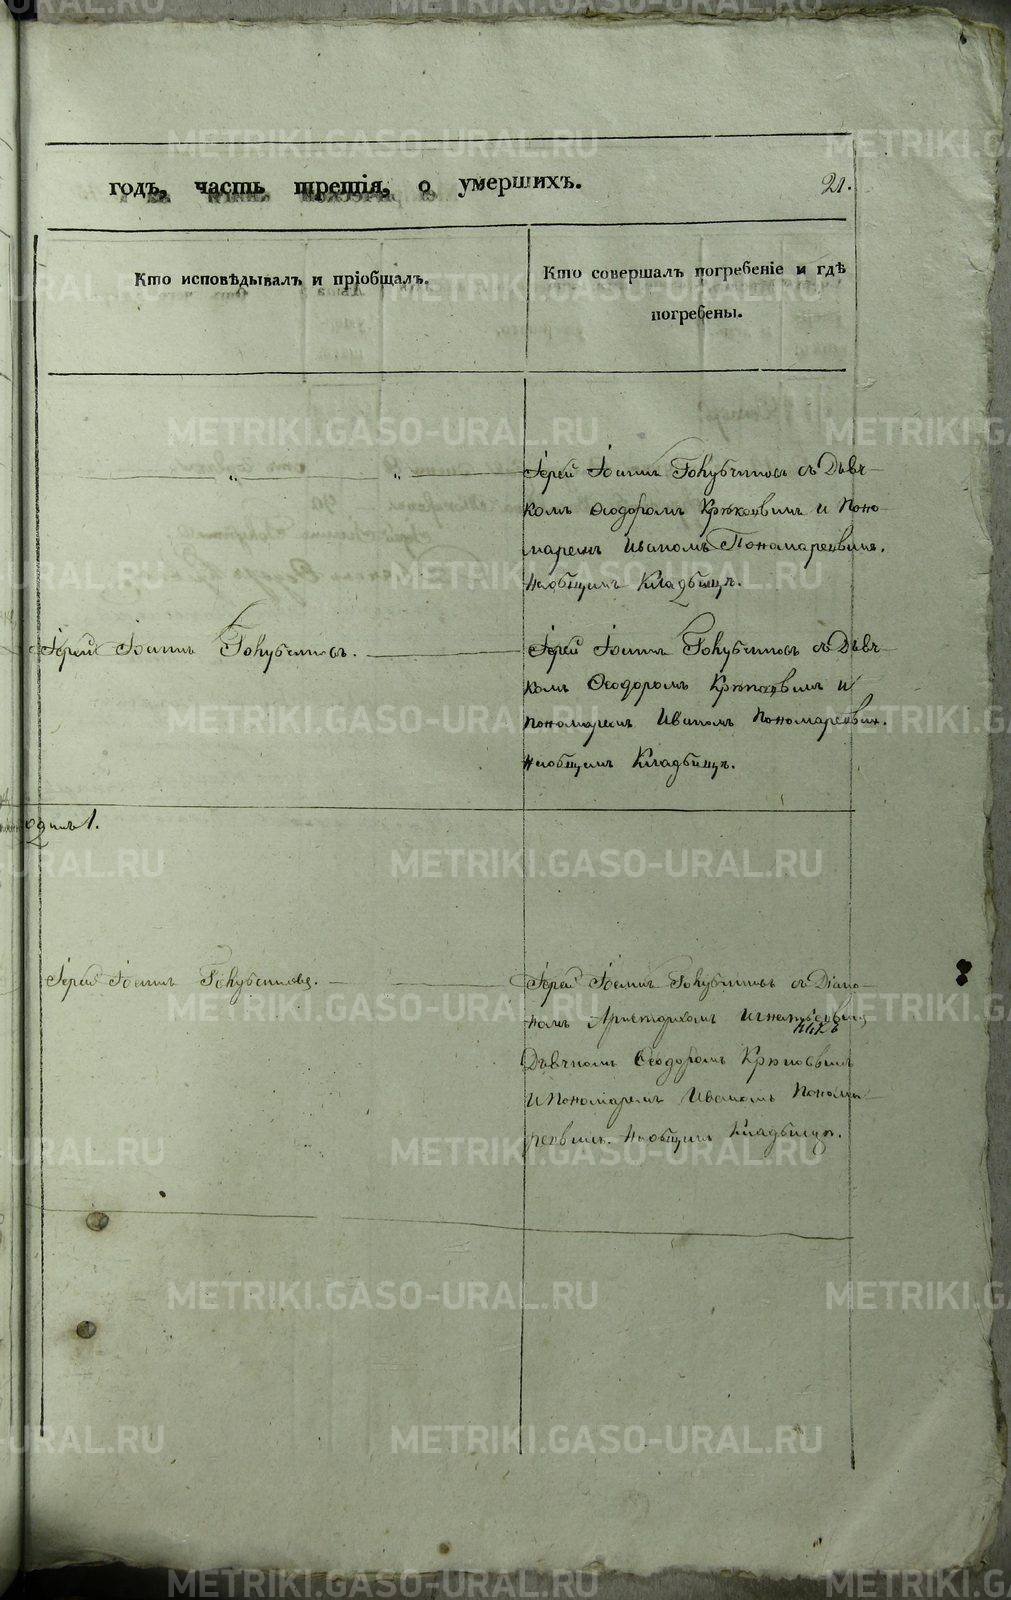 годъ, часть третія, о умершихъ. 21.
Кто исповѣдывалъ и пріобщалъ.
Кто совершалъ погребеніе и гдѣ
погребены.
Іерей Іоаннъ Голубчиковъ съ Дьяч-
комъ Ѳеодоромъ Крюковымъ и Поно-
маремъ Иваномъ Пономаревымъ.
На общемъ Кладбищѣ.
Іерей Іоаннъ Голубчиковъ.
Іерей Іоаннъ Голубчиковъ съ Дьяч-
комъ Ѳеодоромъ Крюковымъ и
Пономаремъ Иваномъ Пономаревым.
На общемъ Кладбищѣ.
одинъ 1.
Іерей Іоаннъ Голубчиковъ.
Іерей Іоаннъ Голубчиковъ съ Діако-
номъ Аристархомъ Игнатьевым
Дьячкомъ Ѳеодоромъ Крюковымъ
и Пономаремъ Иваномъ Понома-
ревымъ. На общемъ Кладбищѣ.
METRIKI.GASO-URAL.RU